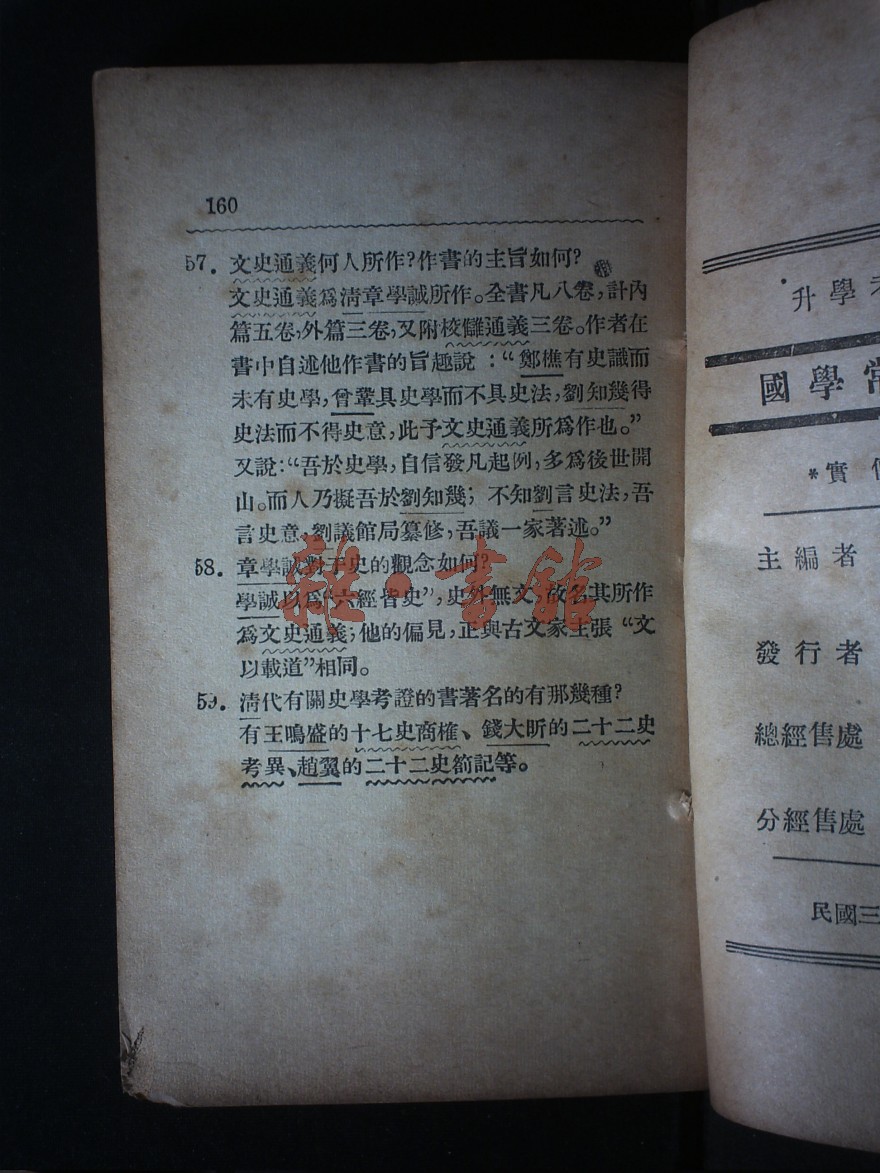 160
57. 文史通義何人所作?作書的主旨如何?
文史通義爲淸章學誠所作。全書凡八卷,計內
篇五卷,外篇三卷,又附校讎通義三卷。作者在
書中自述他作書的旨趣說:“鄭樵有史識而
未有史學,曾鞏具史學而不具史法,劉知幾得
史法而不得史意,此予文史通義所爲作也。”
又說:“吾於史學,自信發凡起例,多爲後世開
山。而人乃擬吾於劉知幾;不知劉言史法,吾
言史意,劉議館局纂修,吾議一家著述。”
58. 章學誠對于史的觀念如何?
學誠以爲“六經皆史”,史外無文,故名其所作
爲文史通義;他的偏見,正與古文家主張“文
以載道”相同。
59. 淸代有關史學考證的書著名的有那幾種?
有王鳴盛的十七史商榷、錢大昕的二十二史
考異、趙翼的二十二史箚記等。
雜·書館
升學
國學常
*實
主編者
發行者
總經售處
分經售處
民國三